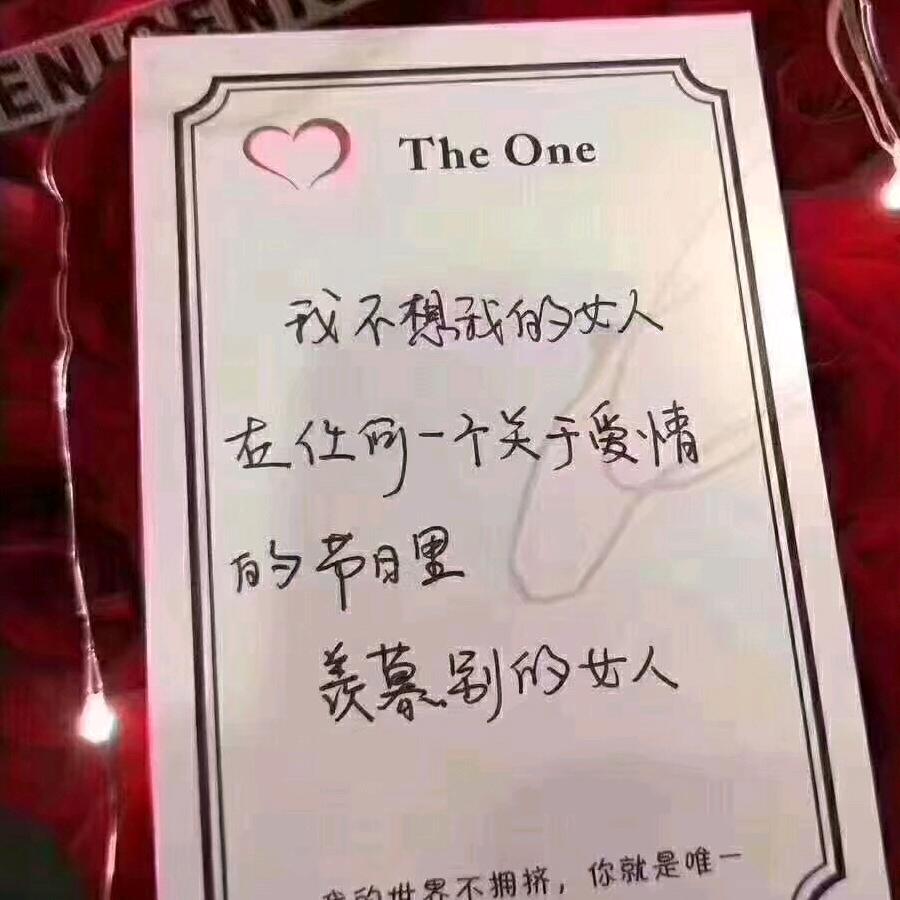 ENIGENIG
The One
我不想我的女人
在任何一个关于爱情
的节日里
羡慕别的女人
我的世界不拥挤，你就是唯一